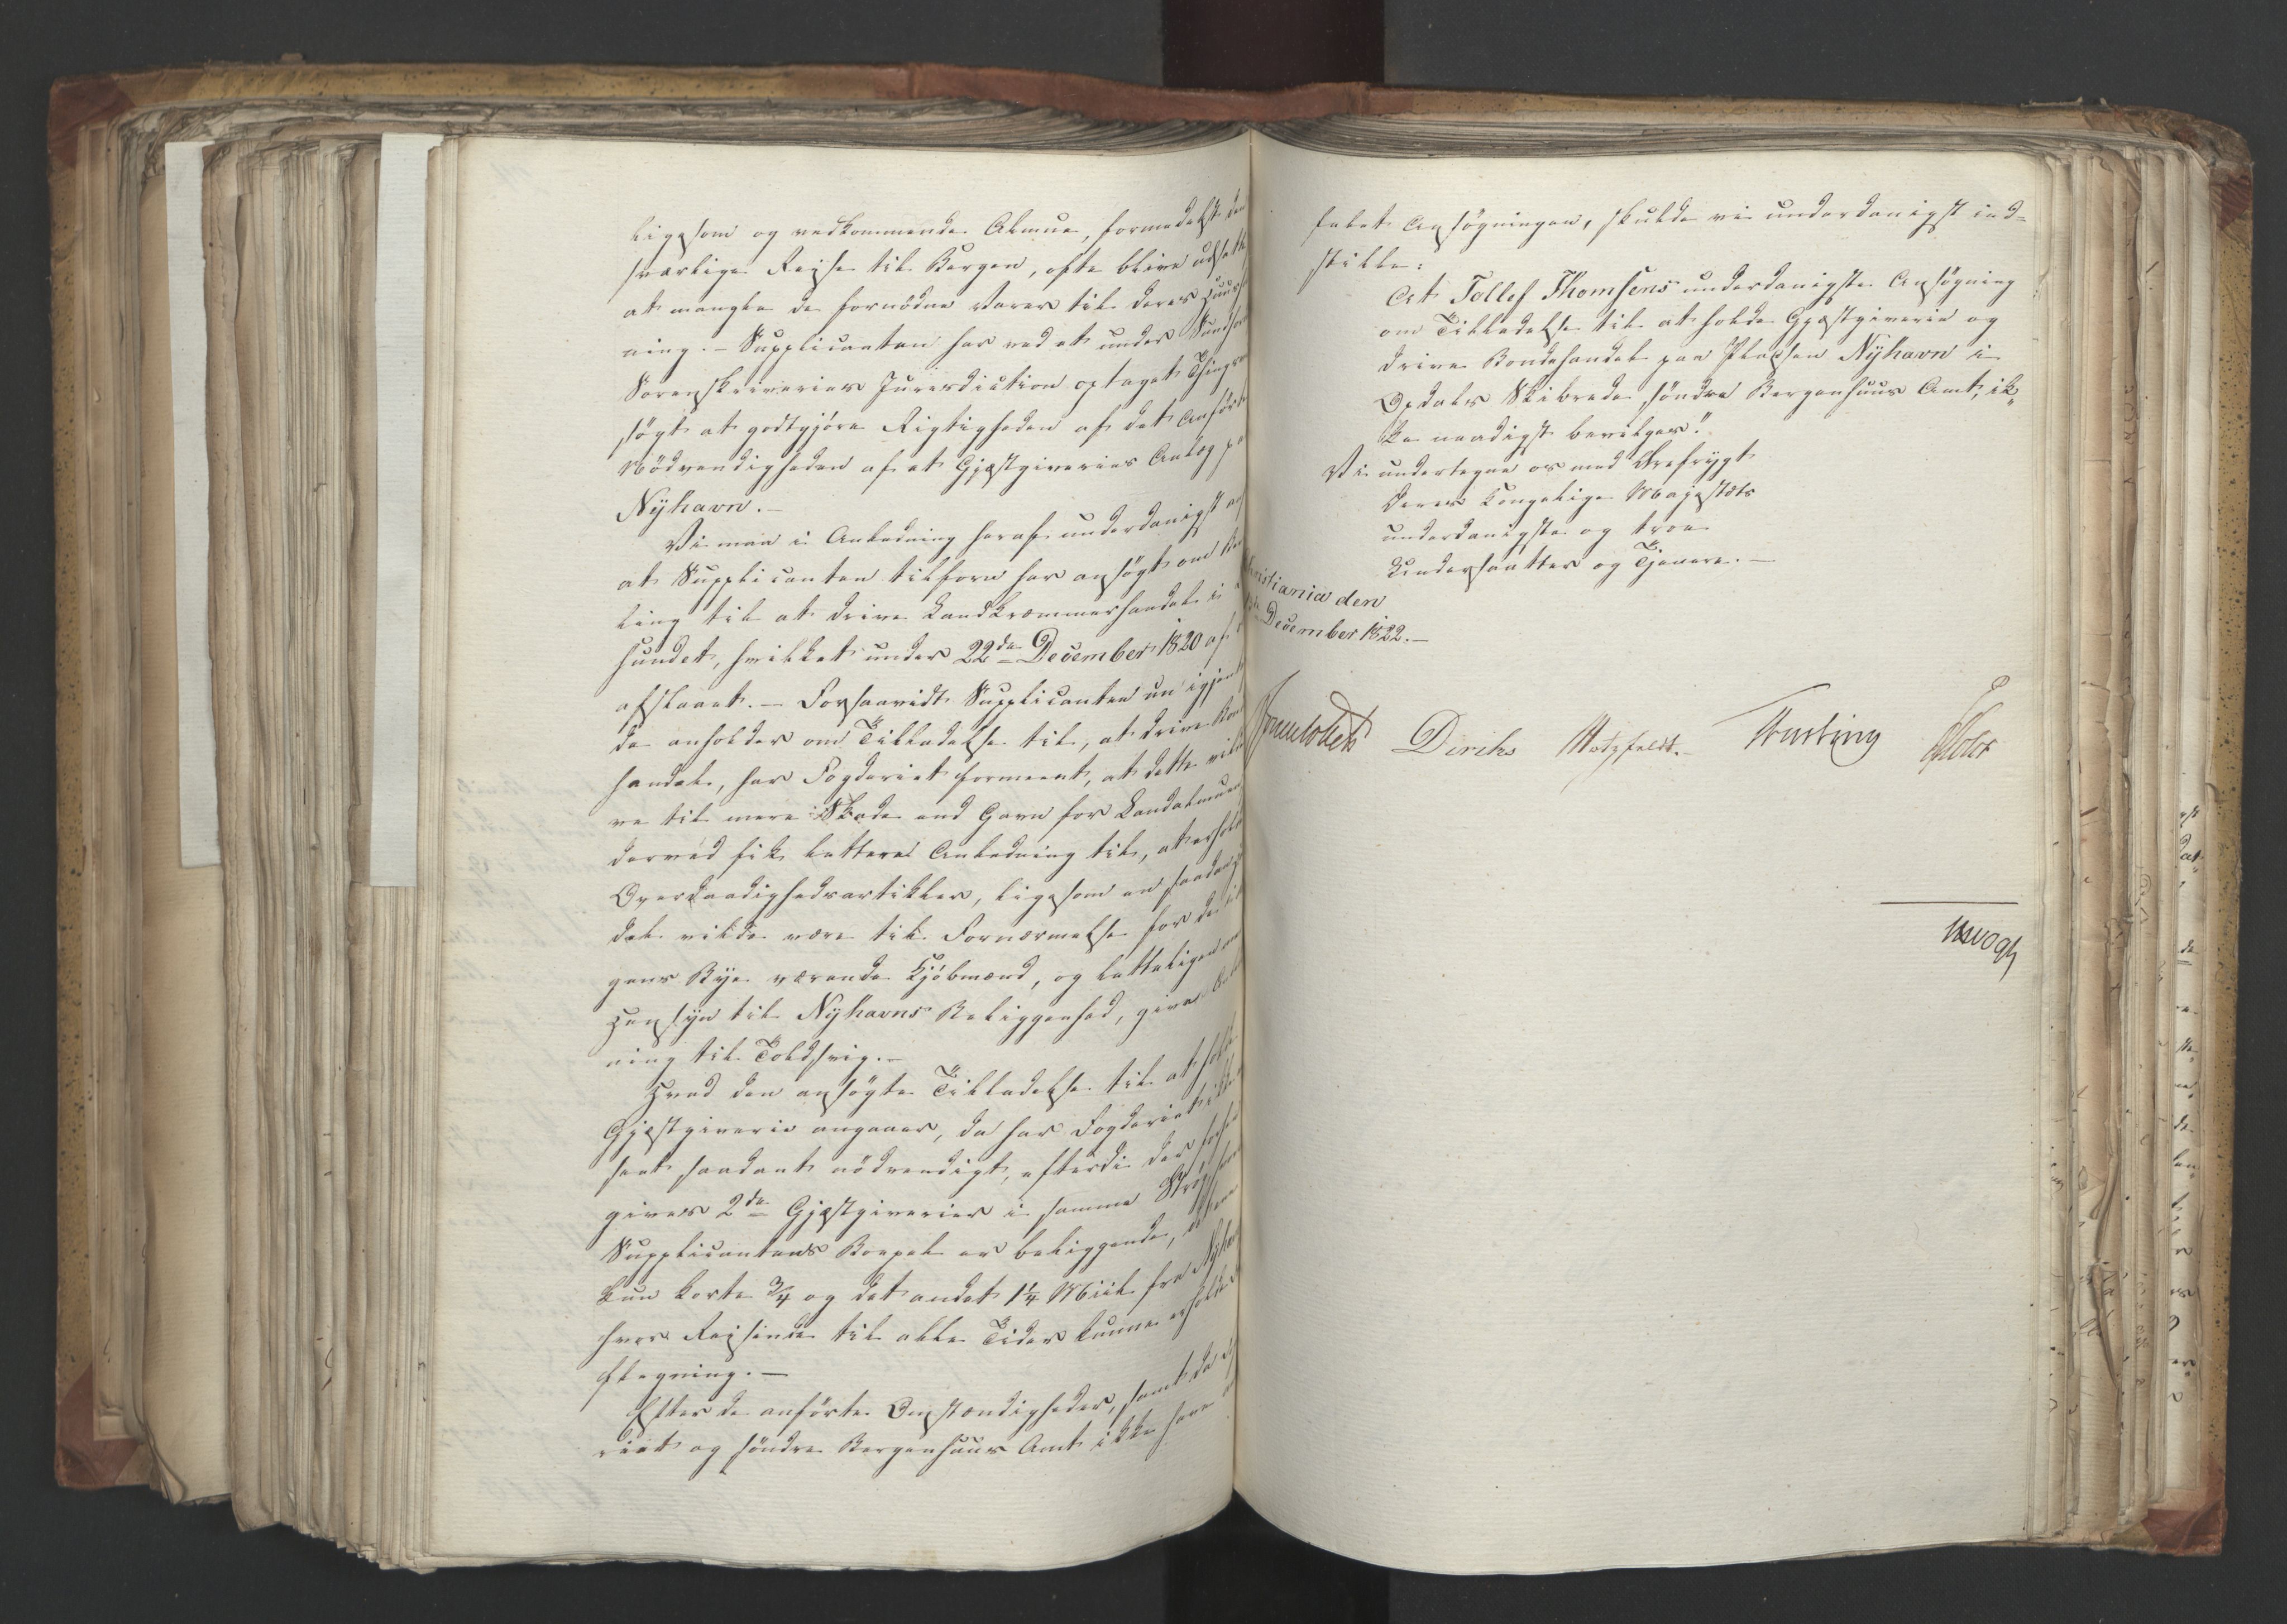 ligesom og vedkommende Almue, formedelst den
farlige Reise til Bergen, ofte blive udsatte
at mangle de fornødne Varer til deres Huus
ning. – Supplicanten har ved et under Sund
Sorenskriveries Jurisdiction optaget Things
søgt at godtgjøre Rigtigheden af det Anførte
Nödvendigheden af et Gjæstgiveries Anlæg paa
Nÿhavn. –
Vi maa i Anledning heraf underdanigst
at Supplicanten tilforn har ansögt om
ling til at drive Landkræmmerhandel i
hundet, hvilket under 22de December 1820 af
afslaaet. – Forsaavidt Supplicanten nu igjen
de anholder om Tilladelse til, at drive
handel, har Fogderiet formeent, at dette vilde
re til mere Skade end Gavn for Landalmuen
derved fik lettere Anledning til, at erholde
Overdaadighedsartikler, ligesom en saadan
del vilde være til Fornærmelse for de i
gens Bÿe værende Kjöbmænd, og letteligen
Hensÿn til Nÿhavns Beliggenhed, give
ning til Toldsvig. –
Hvad den ansögte Tilladelse til at holde
Gjæstgiverie angaaer, da har Fogderiet ikke
seet saadant nödvendigt, efterdi der
gives 2de Gjæstgiverier i samme Strög, hvor
Supplicantens Boepæl er beliggende, det ene
kun korte 3/4 og det andet 1 1/4 Miil fra Nÿhavn
hvor Reisende til alle Tider kunne erholde
flegning. –
Efter de anförte Omstændigheder, samt da
riet og söndre Bergenhuus Amt ikke have
falet Ansögningen, skulde vi underdanigst ind=
stille:
At Tellef Thomsens underdanigste Ansögning
om Tilladelse til at holde Gjæstgiverie og
drive Bondehandel paa Pladsen Nÿhavn i
Opdals Skibrede, söndre Bergenhuus Amt, ik=
ke naadigst bevilges."
Vi undertegne os med Ærefrygt
Deres Kongelige Majestæts
underdanigste og troe
Undersaatter og Tjenere. –
Christiania den
December 1822. –
Diriks Motzfeldt. –
Vogt